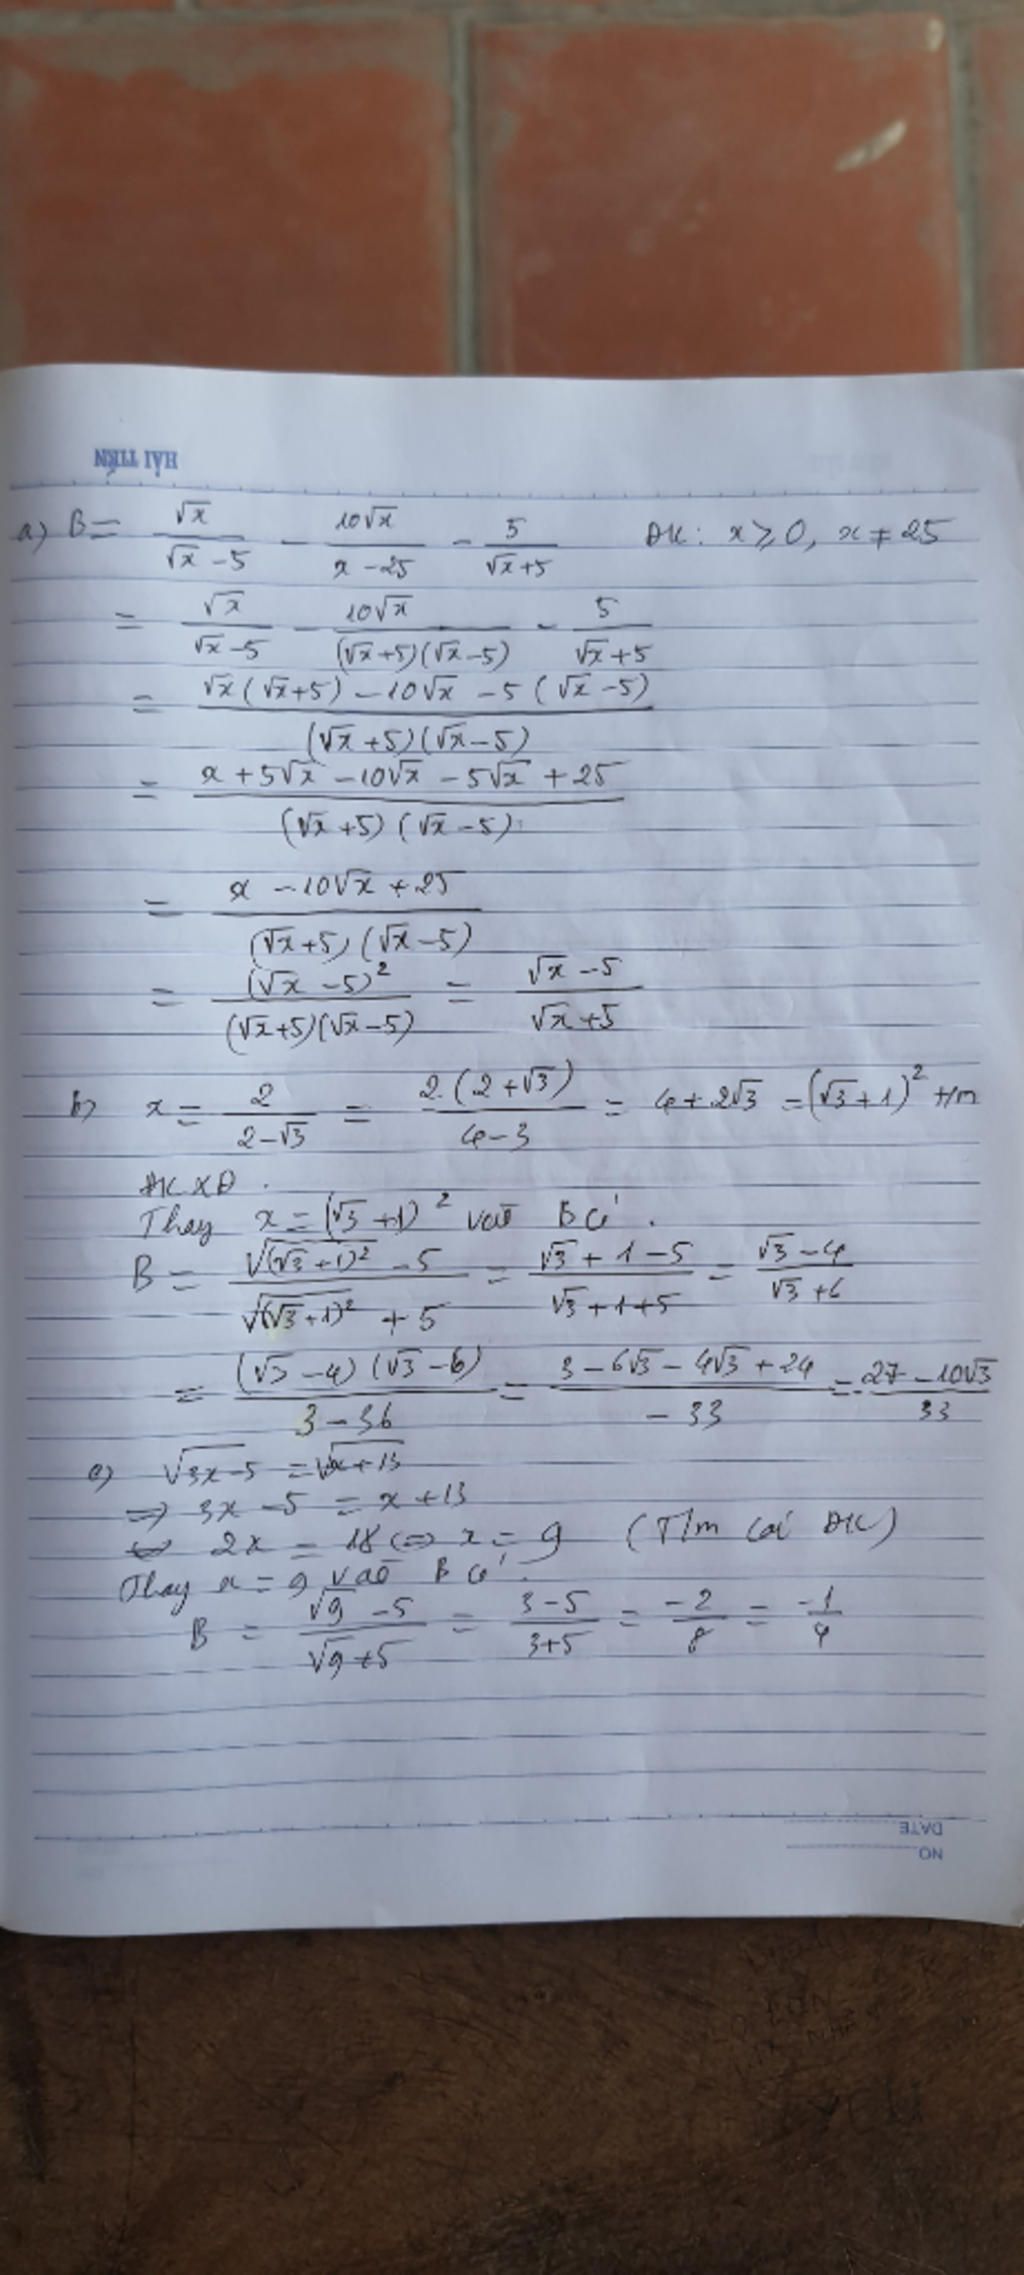 HẢI TIẾN
a) B = √x/(√x - 5) - 10√x/(x - 25) - 5/(√x + 5) ĐK: x ≥ 0, x ≠ 25
= √x/(√x - 5) - 10√x/((√x + 5)(√x - 5)) - 5/(√x + 5)
= (√x(√x + 5) - 10√x - 5(√x - 5))/((√x + 5)(√x - 5))
= (x + 5√x - 10√x - 5√x + 25)/((√x + 5)(√x - 5))
= (x - 10√x + 25)/((√x + 5)(√x - 5))
= (√x - 5)²/((√x + 5)(√x - 5)) = (√x - 5)/(√x + 5)
b) x = 2/(2 - √3) = 2.(2 + √3)/(4 - 3) = 4 + 2√3 = (√3 + 1)² t/m
ĐKXĐ.
Thay x = (√3 + 1)² vào B có.
B = (√((√3 + 1)²) - 5)/(√((√3 + 1)²) + 5) = (√3 + 1 - 5)/(√3 + 1 + 5) = (√3 - 4)/(√3 + 6)
= (√3 - 4)(√3 - 6)/(3 - 36) = (3 - 6√3 - 4√3 + 24)/(-33) = -(27 - 10√3)/33
c) √(3x - 5) = √(x + 13)
⇒ 3x - 5 = x + 13
⇔ 2x = 18 ⇔ x = 9 (T/m các ĐK)
Thay x = 9 vào B có:
B = (√9 - 5)/(√9 + 5) = (3 - 5)/(3 + 5) = -2/8 = -1/4
DATE
NO